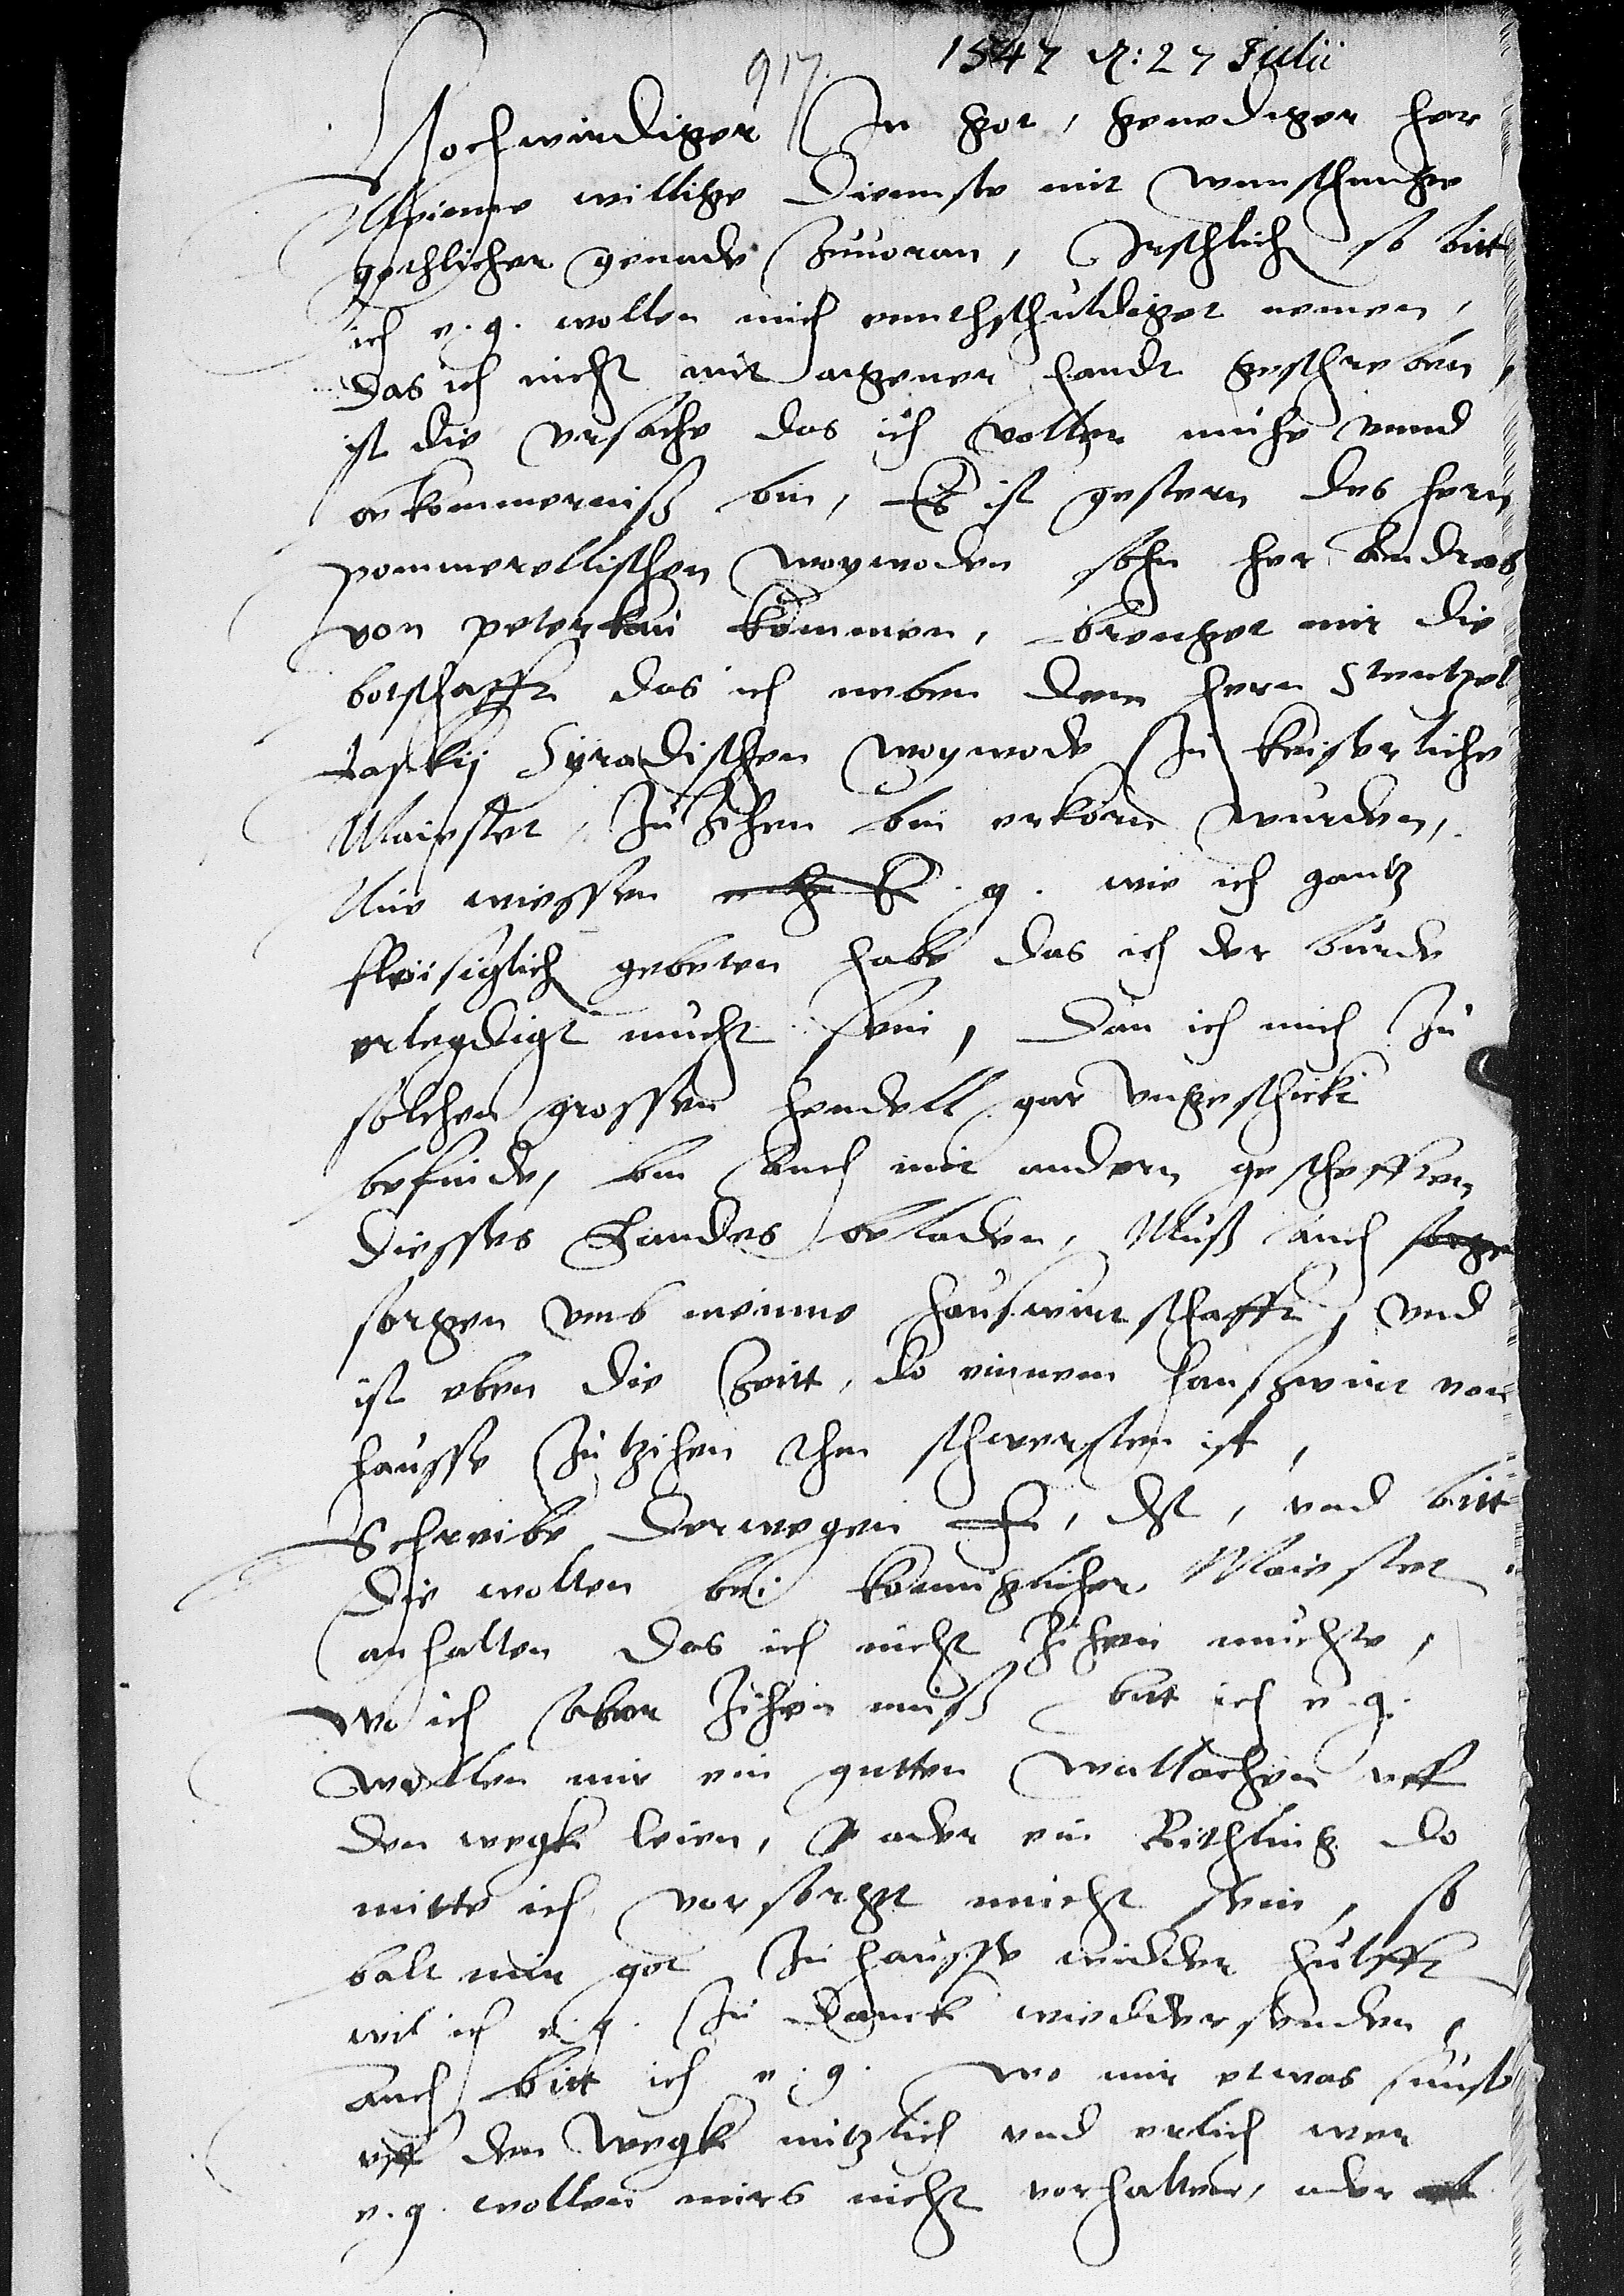 1547 d: 27 Julii
917
Hochwirdiger In got, genediger her
Meine willige Diennste mit wunschunge
gothlicher genade zuuoran, Erschlich so bitt
ich e. g. wollen mich enntschuldiget nemen,
Das ich nicht mit aigener handt geschreben,
ist die ursache das ich voller muhe unnd
bekommerniß bin, Es ist gestern des hern
pommerellischen woywoden sohn her Andreas
von peterkau kommen, brenget mir die
botschafft das ich neben dem hern Stentzel
Laskij Syradischen woywode zu keiserliche
Maiestet, zu zihen bin erkorn wurden,
Nue wiessen e. g. wie ich gantz
fleisiglich gebeten habe das ich der burde
erlegdigt mucht sein, Dan ich mich zu
solchen grossen hendell gar ungeschickt
befinde, bin auch mit andern gescheften
Diesses Landes beladen, Muß auch sorge
sorgen umb meinne hauswirtschafft, und
ist eben die zeitt, do einnem hauswirt von
hausse zu tzihen Ihm schwersten ist,
Schreibe Derwegen E, und bitt
Die wollen bei konniglicher Maiestet
anhalten das ich nicht zihen muchte,
wo ich aber zihen muß bitt ich e. g.
wollen mir ein gutten wallachen uff
den wegk leien, ader ein Rithling do
mitte ich vorsorget mucht sein, so
balt mir got zu hausse widder hulfft
wil ich e. g. zu Danck wieddersenden,
Auch bitt ich e. g. wo mir etwas sunst
uff den wegk nutzlich und erlich wer
e. g. wollen mirs nicht vorhalten, ader